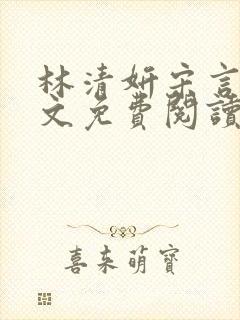 林清妍宋言
文免費閱讀
喜来萌寶